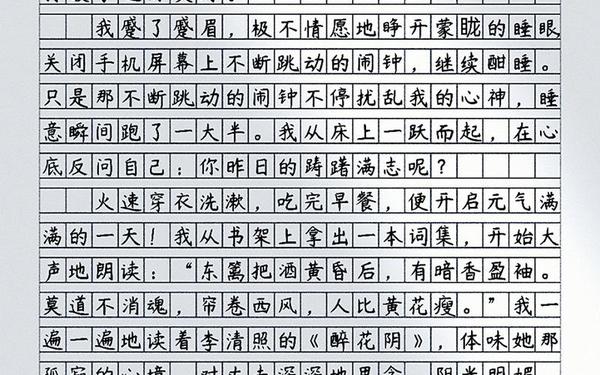 我蹙了蹙眉，极不情愿地睁开蒙眬的睡眼
关闭手机屏幕上不断跳动的闹钟，继续酣睡。
只是那不断跳动的闹钟不停扰乱我的心神，睡
意瞬间跑了一大半。我从床上一跃而起，在心
底反问自己：你昨日的踌躇满志呢？
火速穿衣洗漱，吃完早餐，便开启元气满
满的一天！我从书架上拿出一本词集，开始大
声地朗读：“东篱把酒黄昏后，有暗香盈袖。
莫道不消魂，帘卷西风，人比黄花瘦。”我一
遍一遍地读着李清照的《醉花阴》，体味她那
孤寂的心境、对丈夫深深地思念。阳光明媚